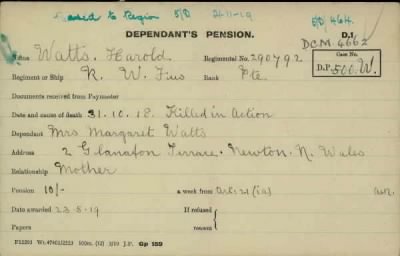 Passed to Region 5/D 24-11-19
5/D, 464.
DEPENDANT'S PENSION.
D.1
DCM. 4662
Name Watts. Harold Regimental No. 290792
Case No.
D.P. 500. W.
Regiment or Ship R. W. Fus Rank Pte.
Documents received from Paymaster
Date and cause of death 31.10.18. Killed in Action
Dependant Mrs Margaret Watts
Address 2 Glanafon Terrace. Newton. N. Wales
Relationship Mother
Pension 10/- a week from Art. 21 (1a)
Date awarded 23-8-19 If refused
Papers reason